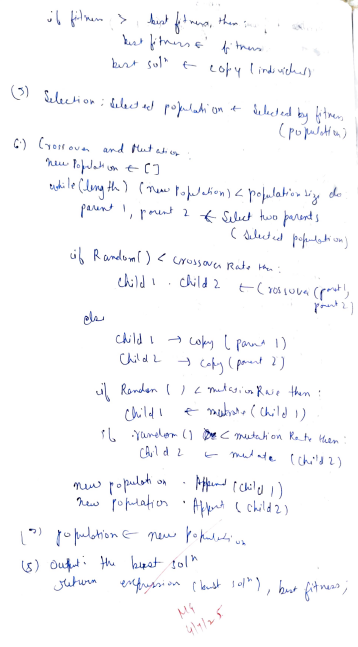 if fitness > best fitness, then:
best fitness ← fitness
best solⁿ ← copy (individual)
(5) Selection : Selected population ← Selected by fitness
(population)
6.) Crossover and Mutation :
new Population ← []
while (length) (new Population) < population size do
parent 1, parent 2 ← Select two parents
(Selected population)
if Random() < crossover Rate then :
child 1 . child 2 ← Crossover (parent 1,
parent 2)
else
child 1 → copy (parent 1)
child 2 → copy (parent 2)
if Random ( ) < mutation Rate then :
child 1 ← mutate (child 1)
if random () < mutation Rate then :
child 2 ← mutate (child 2)
new population . Append (child 1)
new population . Append (child 2)
(7) population ← new population
(8) Output : the best solⁿ
return expression (best solⁿ), best fitness;